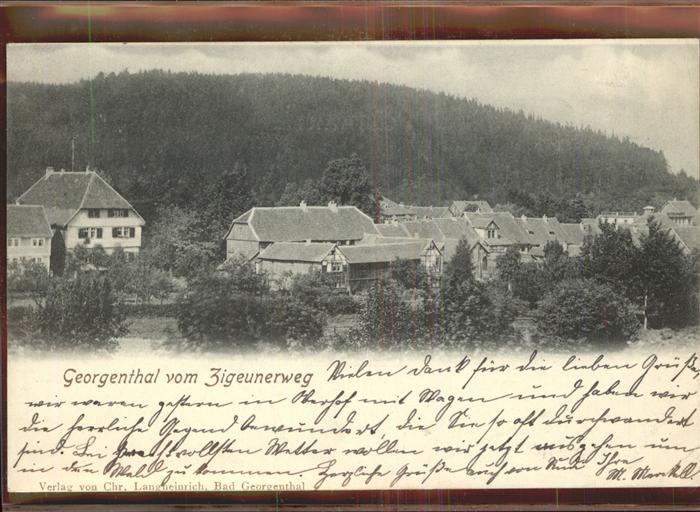 Georgenthal vom Zigeunerweg
Vielen Dank für die lieben Grüße,
wir waren gestern in Oberhof mit Wagen und haben wir
die herrliche Gegend bewundert, die Sie so oft durchwandert
sind. Bei prachtvollsten Wetter wollen wir jetzt ausgehen um
in den Wald zu kommen. Herzliche Grüße auch von Ihre
M.
Verlag von Chr. Langheinrich, Bad Georgenthal